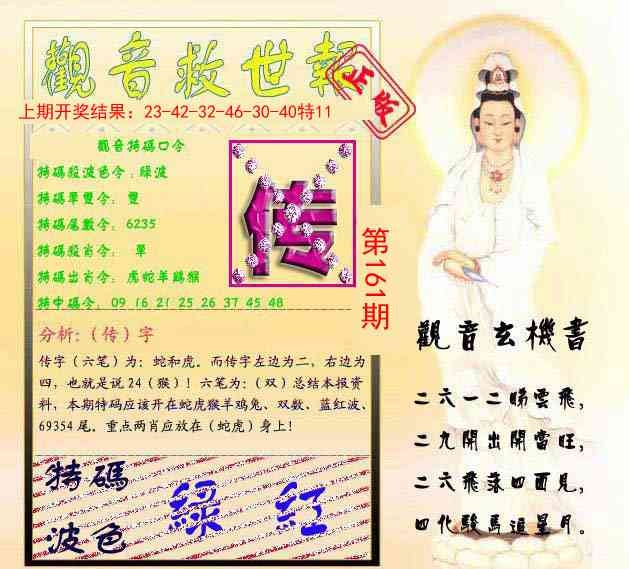 觀音救世報
正版
上期开奖结果：23-42-32-46-30-40特11
觀音特碼口令
特碼殺波色令：綠波
特碼單雙令： 雙
特碼尾數令： 6235
特碼殺肖令： 單
特碼出肖令： 虎蛇羊鷄猴
特中碼令： 09 16 21 25 26 37 45 48
传
第161期
分析:（传）字
传字（六笔）为：蛇和虎。而传字左边为二，右边为
四，也就是说24（猴）！六笔为：（双）总结本报资
料，本期特码应该开在蛇虎猴羊鸡兔、双数、蓝红波、
69354尾。重点两肖应放在（蛇虎）身上！
特碼
波色
綠 紅
觀音玄機書
二六一二睇雲飛，
二九開出開當旺，
二六飛落四面見，
四化駿馬追星月。